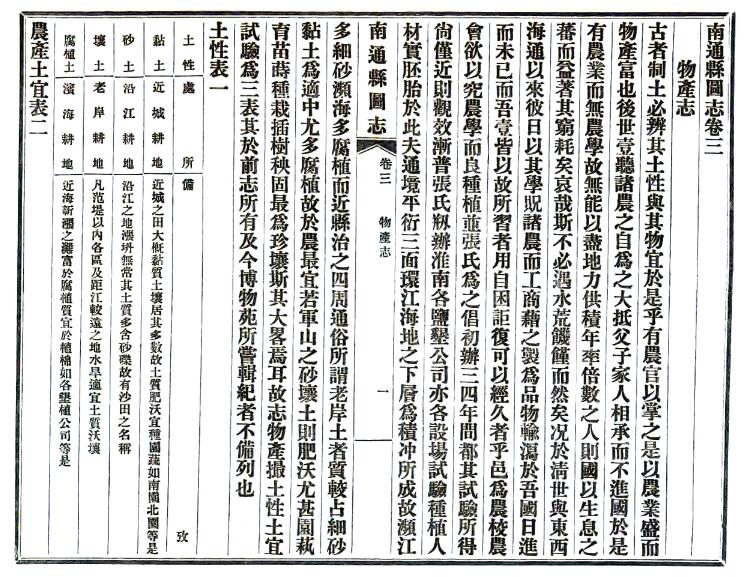 南通縣圖志卷三
物產志
古者制土必辨其土性與其物宜於是乎有農官以掌之是以農業盛而
物產富也後世壹聽諸農之自爲之大抵父子家人相承而不進國於是
有農業而無農學故無能以盡地力供積年率倍數之人則國以生息之
蕃而益著其窮耗矣哀哉斯不必遇水荒饑饉而然矣况於清世與東西
海通以來彼日以其學貺諸農而工商藉之製爲品物輸瀉於吾國日進
而未已而吾壹皆以故所習者用自困詎復可以經久者乎邑爲農校農
會欲以究農學而良種植並張氏爲之倡初辦三四年間都其試驗所得
尚僅近則觀效漸普張氏剏辦淮南各鹽墾公司亦各設場試驗種植人
材實胚胎於此夫通境平衍三面環江海地之下層爲積冲所成故瀕江
南通縣圖志
卷三
物產志
一
多細砂瀕海多腐植而近縣治之四周通俗所謂老岸土者質較占細砂
黏土爲適中尤多腐植故於農最宜若軍山之砂壤土則肥沃尤甚園蓺
育苗蒔種栽插樹秧固最爲珍壤斯其大畧焉耳故志物產撮土性土宜
試驗爲三表其於前志所有及今博物苑所嘗輯紀者不備列也
土性表一
土性 處所 備攷
黏土 近城耕地 近城之田大概黏質土壤居其多數故土質肥沃宜種園蔬如南園北園等是
砂土 沿江耕地 沿江之地漲坍無常其土質多含砂礫故有沙田之名稱
壤土 老岸耕地 凡范堤以內各區及距江較遠之地水旱適宜土質沃壤
腐植土 濱海耕地 近海新漲之灘富於腐植質宜於植棉如各墾植公司等是
農產土宜表二